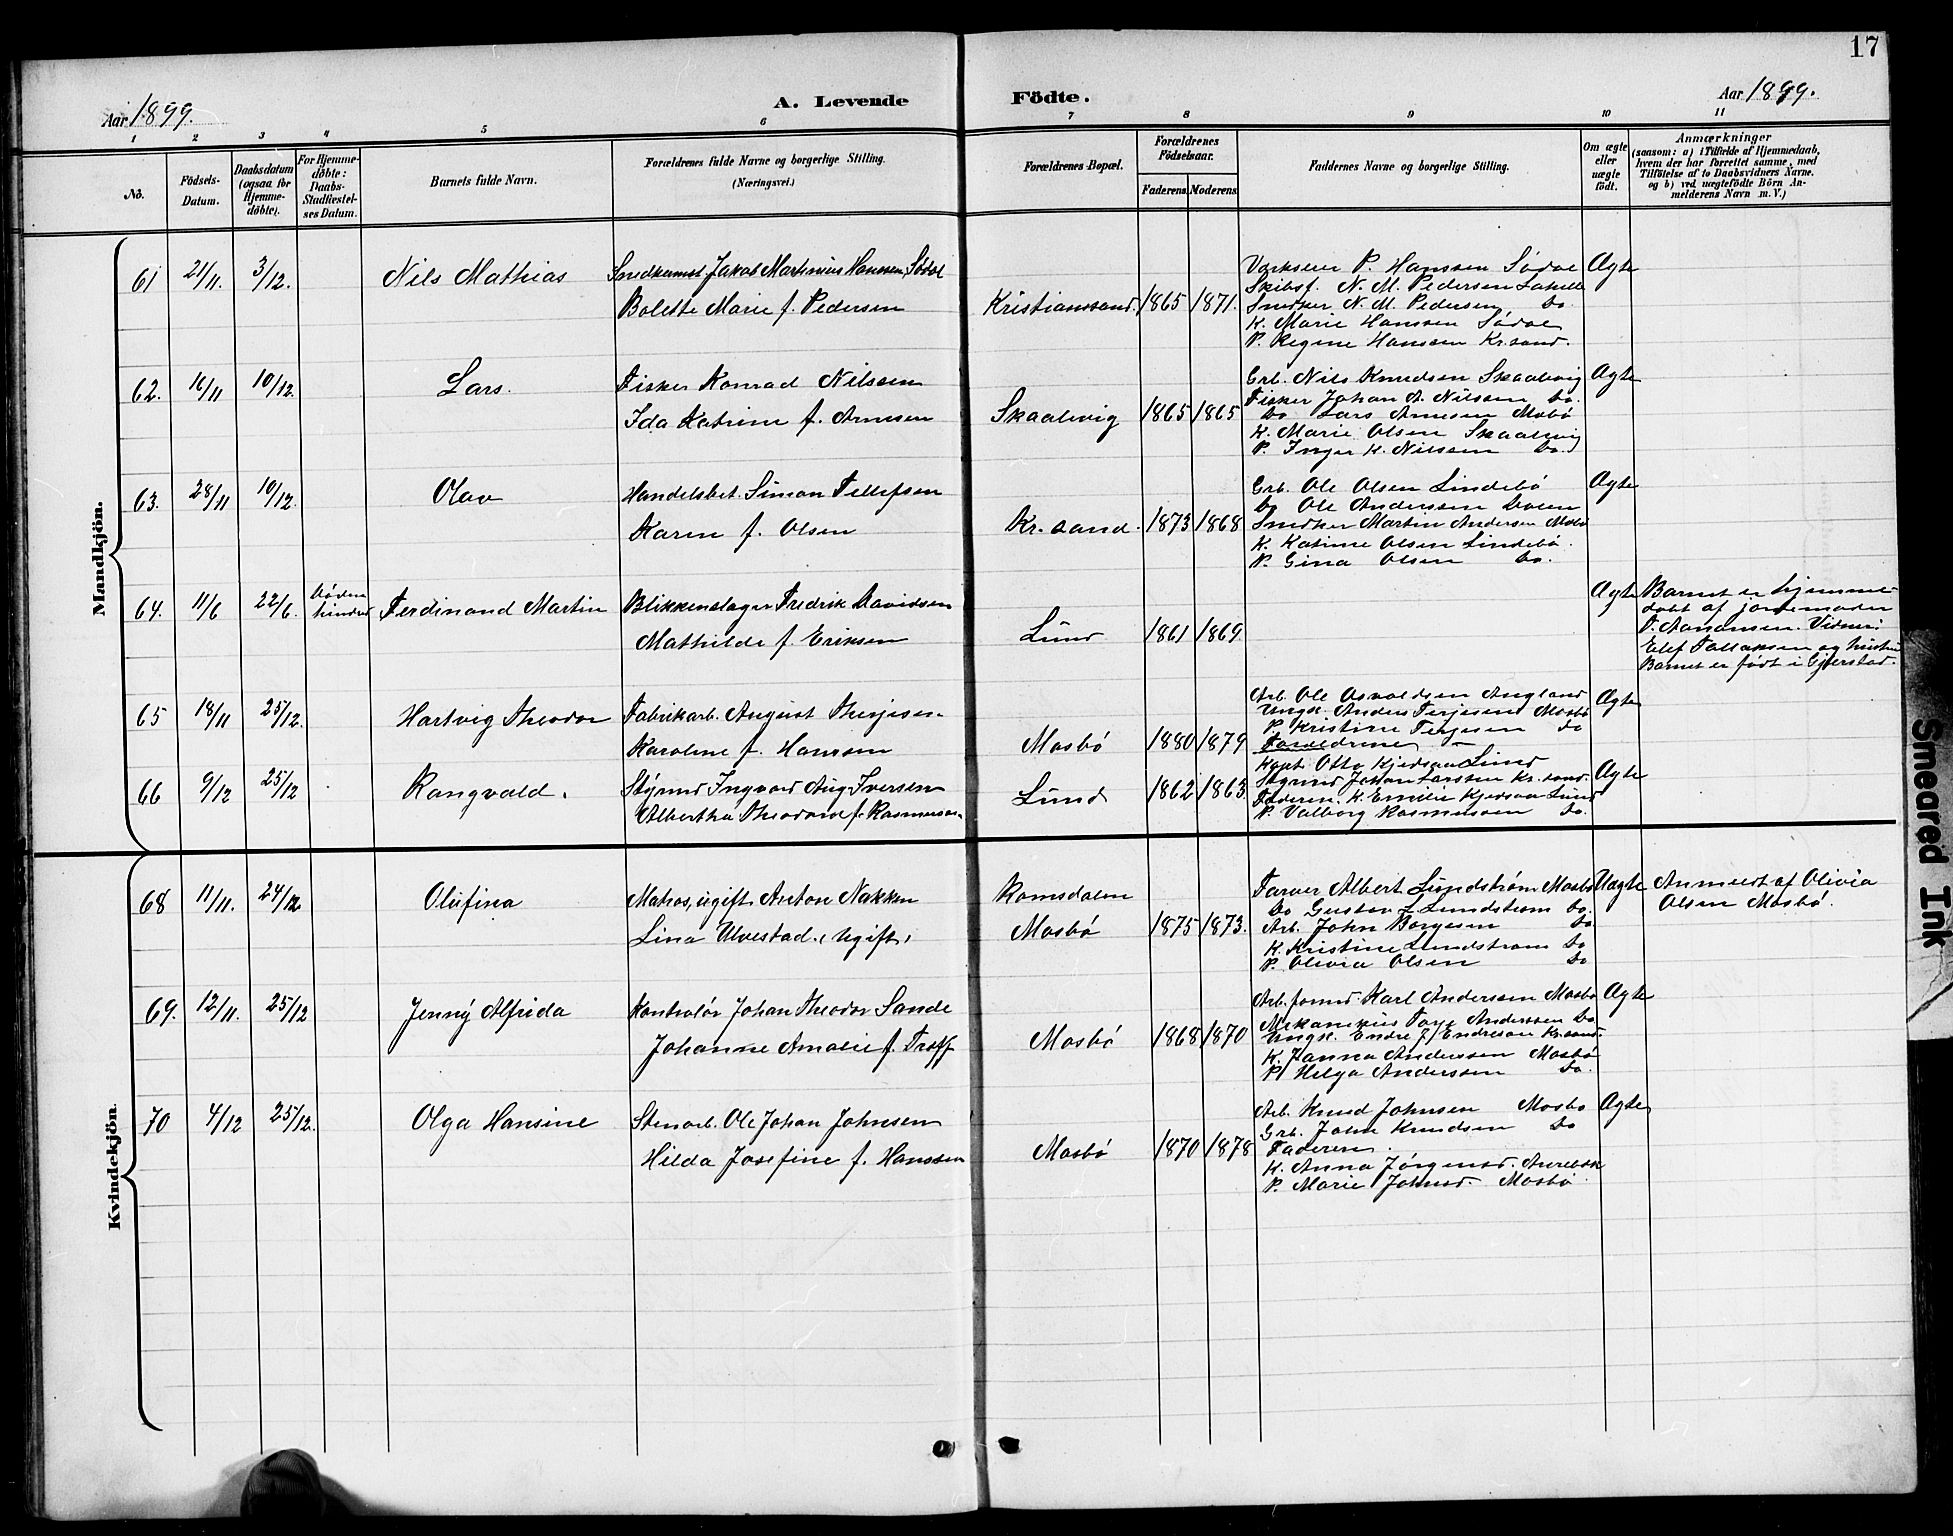 17
Aar 1899.
A. Levende Födte.
Aar 1899.
1 2 3 4 5 6 7 8 9 10 11
No.
Födsels-Datum.
Daabsdatum (ogsaa for Hjemme-döbte).
For Hjemme-döbte: Daabs-Stadfæstel-ses Datum.
Barnets fulde Navn.
Forældrenes fulde Navne og borgerlige Stilling. (Næringsvei.)
Forældrenes Bopæl.
Forældrenes Födselsaar.
Faderens. Moderens.
Faddernes Navne og borgerlige Stilling.
Om ægte eller uægte født.
Anmærkninger
(saasom: a) i Tilfælde af Hjemmedaab,
hvem der har forrettet samme, med
Tilföielse af to Daabsvidners Navne.
og b) ved uægtefödte Börn An-
melderens Navn m. V.)
Mandkjön.
61 21/11. 3/12. Nils Mathias
Snedkermst Jakob Martinius Hanssen, Sødal
Bolette Marie f. Pedersen
Kristianssand. 1865 1871.
Værkseier P. Hanssen Sødal
Skibsf. N. M. Pedersen
Snedker N. M. Pedersen Do.
K. Marie Hanssen Sødal
P. Regine Hanssen Kr.sand.
Ægte
62. 16/11 10/12. Lars.
Fisker Konrad Nilssen
Ida Katrine f. Arnesen
Skaalevig 1865 1865
Grb. Nils Knudsen Skaalevig
Fisker Johan A. Nilssen Do.
Do Lars Arnesen Mosbø
K. Marie Olsen Skaalevig
P. Inger K. Nilssen Do.
Ægte
63. 28/11 10/12. Olav
Handelsbet. Simon Tellefsen
Karen f. Olsen
Kr.sand. 1873 1868
Grb. Ole Olsen Lindebø
Do Ole Anderssen Dolen
Snedker Martin Andersen Mosbø
K. Katrine Olsen Lindebø.
P. Gina Olsen Do.
Ægte
64. 11/6 22/6. Ferdinand Martin
Blikkenslager Fredrik Davidsen
Mathilde f. Eriksen
Lund 1861 1869.
Ægte
Barnet er hjemme-
døbt af jordemoder
T. Aanonsen. Vidner:
Elef Tallaksen og hustru
Barnet er født i Gjerstad.
65 18/11 25/12. Hartvig Theodor
Fabrikarb. August Therjesen
Karoline f. Hansen
Mosbø 1880 1879
Arb. Ole Osvaldsen Augland
Ungk. Anders Terjesen Mosbø
P. Kristine Terjesen Do
Forældrene
Ægte
66 9/12 25/12 Rangvald.
Styrmd Ingvald Aug. Iversen
Albertha Theodora f. Rasmussen
Lund 1862 1863.
Kapt. Otto Kjedsaa Lund
Styrmd Johan Larssen Kr.sand.
Faderen. K. Emilie Kjedsaa Lund
P. Valborg Rasmussen Do.
Ægte
Kvindekjön.
68 11/11. 24/12 Olufina
Matros, ugift Anton Nakken
Lina Ulvestad. (Ugift)
Romsdalen
Mosbø 1875 1873.
Farver Albert Lundstrøm Mosbø
Do Gustav L. Lundstrøm Do.
Arb. John Børgesen Do
K. Kristine Lundstrøm Do
P. Olivia Olsen Do
Uægte
Anmeldt af Olivia
Olsen Mosbø.
69. 12/11. 25/12 Jenny Alfrida
Kontrolør Johan Theodor Sande
Johanne Amalie f. Traff
Mosbø 1868 1870
Arb.formd. Karl Anderssen Mosbø
Mekanikus Toye Anderssen Do
Ungk. Endre J. Endresen Kr.sand.
K. Janna Anderssen Mosbø
P. Helga Anderssen Do.
Ægte
70 4/12 25/12. Olga Hansine
Stenarb. Ole Johan Johnsen
Hilda Josefine f. Hanssen
Mosbø 1870 1878
Arb. Knud Johnsen Mosbø
Grb. John Knudsen Do
Faderen.
K. Anna Jørgensd.
P. Marie Johnsd. Mosbø
Ægte
Smeared Ink